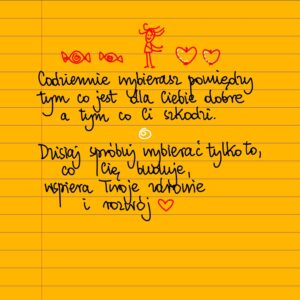 Codziennie wybierasz pomiędzy
tym co jest dla Ciebie dobre
a tym co Ci szkodzi.
Dzisiaj spróbuj wybierać tylko to,
co Cię buduje,
wspiera Twoje zdrowie
i rozwój